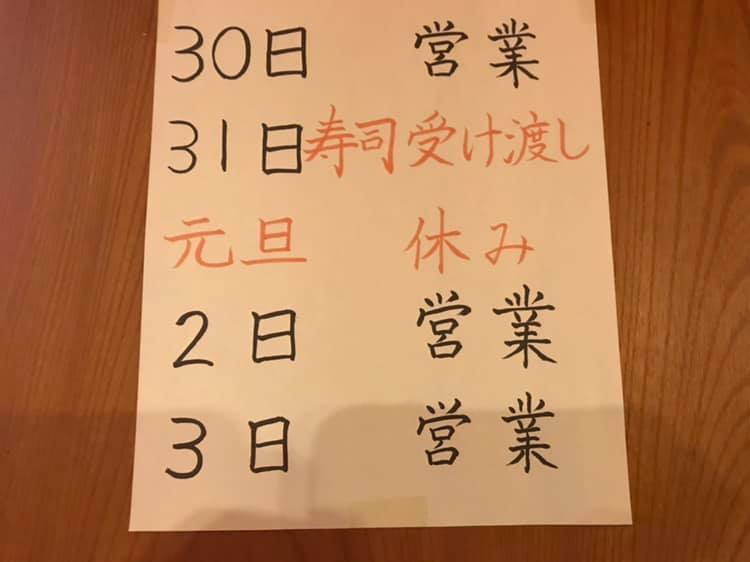 30日 営業
31日寿司受け渡し
元旦 休み
2日 営業
3日 営業